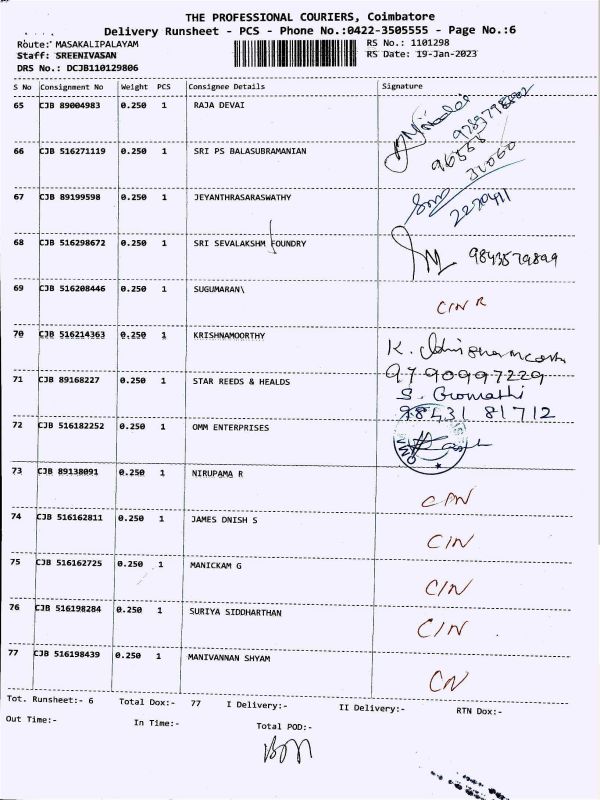 THE PROFESSIONAL COURIERS, Coimbatore
Delivery Runsheet - PCS - Phone No.:0422-3505555 - Page No.:6
Route: MASAKALIPALAYAM
Staff: SREENIVASAN
DRS No.: DCJB110129806
RS No.: 1101298
RS Date: 19-Jan-2023
S No Consignment No Weight PCS Consignee Details Signature
65 CJB 89004983 0.250 1 RAJA DEVAI
66 CJB 516271119 0.250 1 SRI PS BALASUBRAMANIAN
67 CJB 89199598 0.250 1 JEYANTHRASARASWATHY
2270411
68 CJB 516298672 0.250 1 SRI SEVALAKSHM FOUNDRY
9843579899
69 CJB 516208446 0.250 1 SUGUMARAN\
CIN R
70 CJB 516214363 0.250 1 KRISHNAMOORTHY
K.
9790997229
71 CJB 89168227 0.250 1 STAR REEDS & HEALDS
S. Gomathi
98431 81712
72 CJB 516182252 0.250 1 OMM ENTERPRISES
73 CJB 89138091 0.250 1 NIRUPAMA R
74 CJB 516162811 0.250 1 JAMES DNISH S
CIN
75 CJB 516162725 0.250 1 MANICKAM G
CIN
76 CJB 516198284 0.250 1 SURIYA SIDDHARTHAN
CIN
77 CJB 516198439 0.250 1 MANIVANNAN SHYAM
CN
Tot. Runsheet:- 6 Total Dox:- 77 I Delivery:- II Delivery:- RTN Dox:-
Out Time:- In Time:- Total POD:-